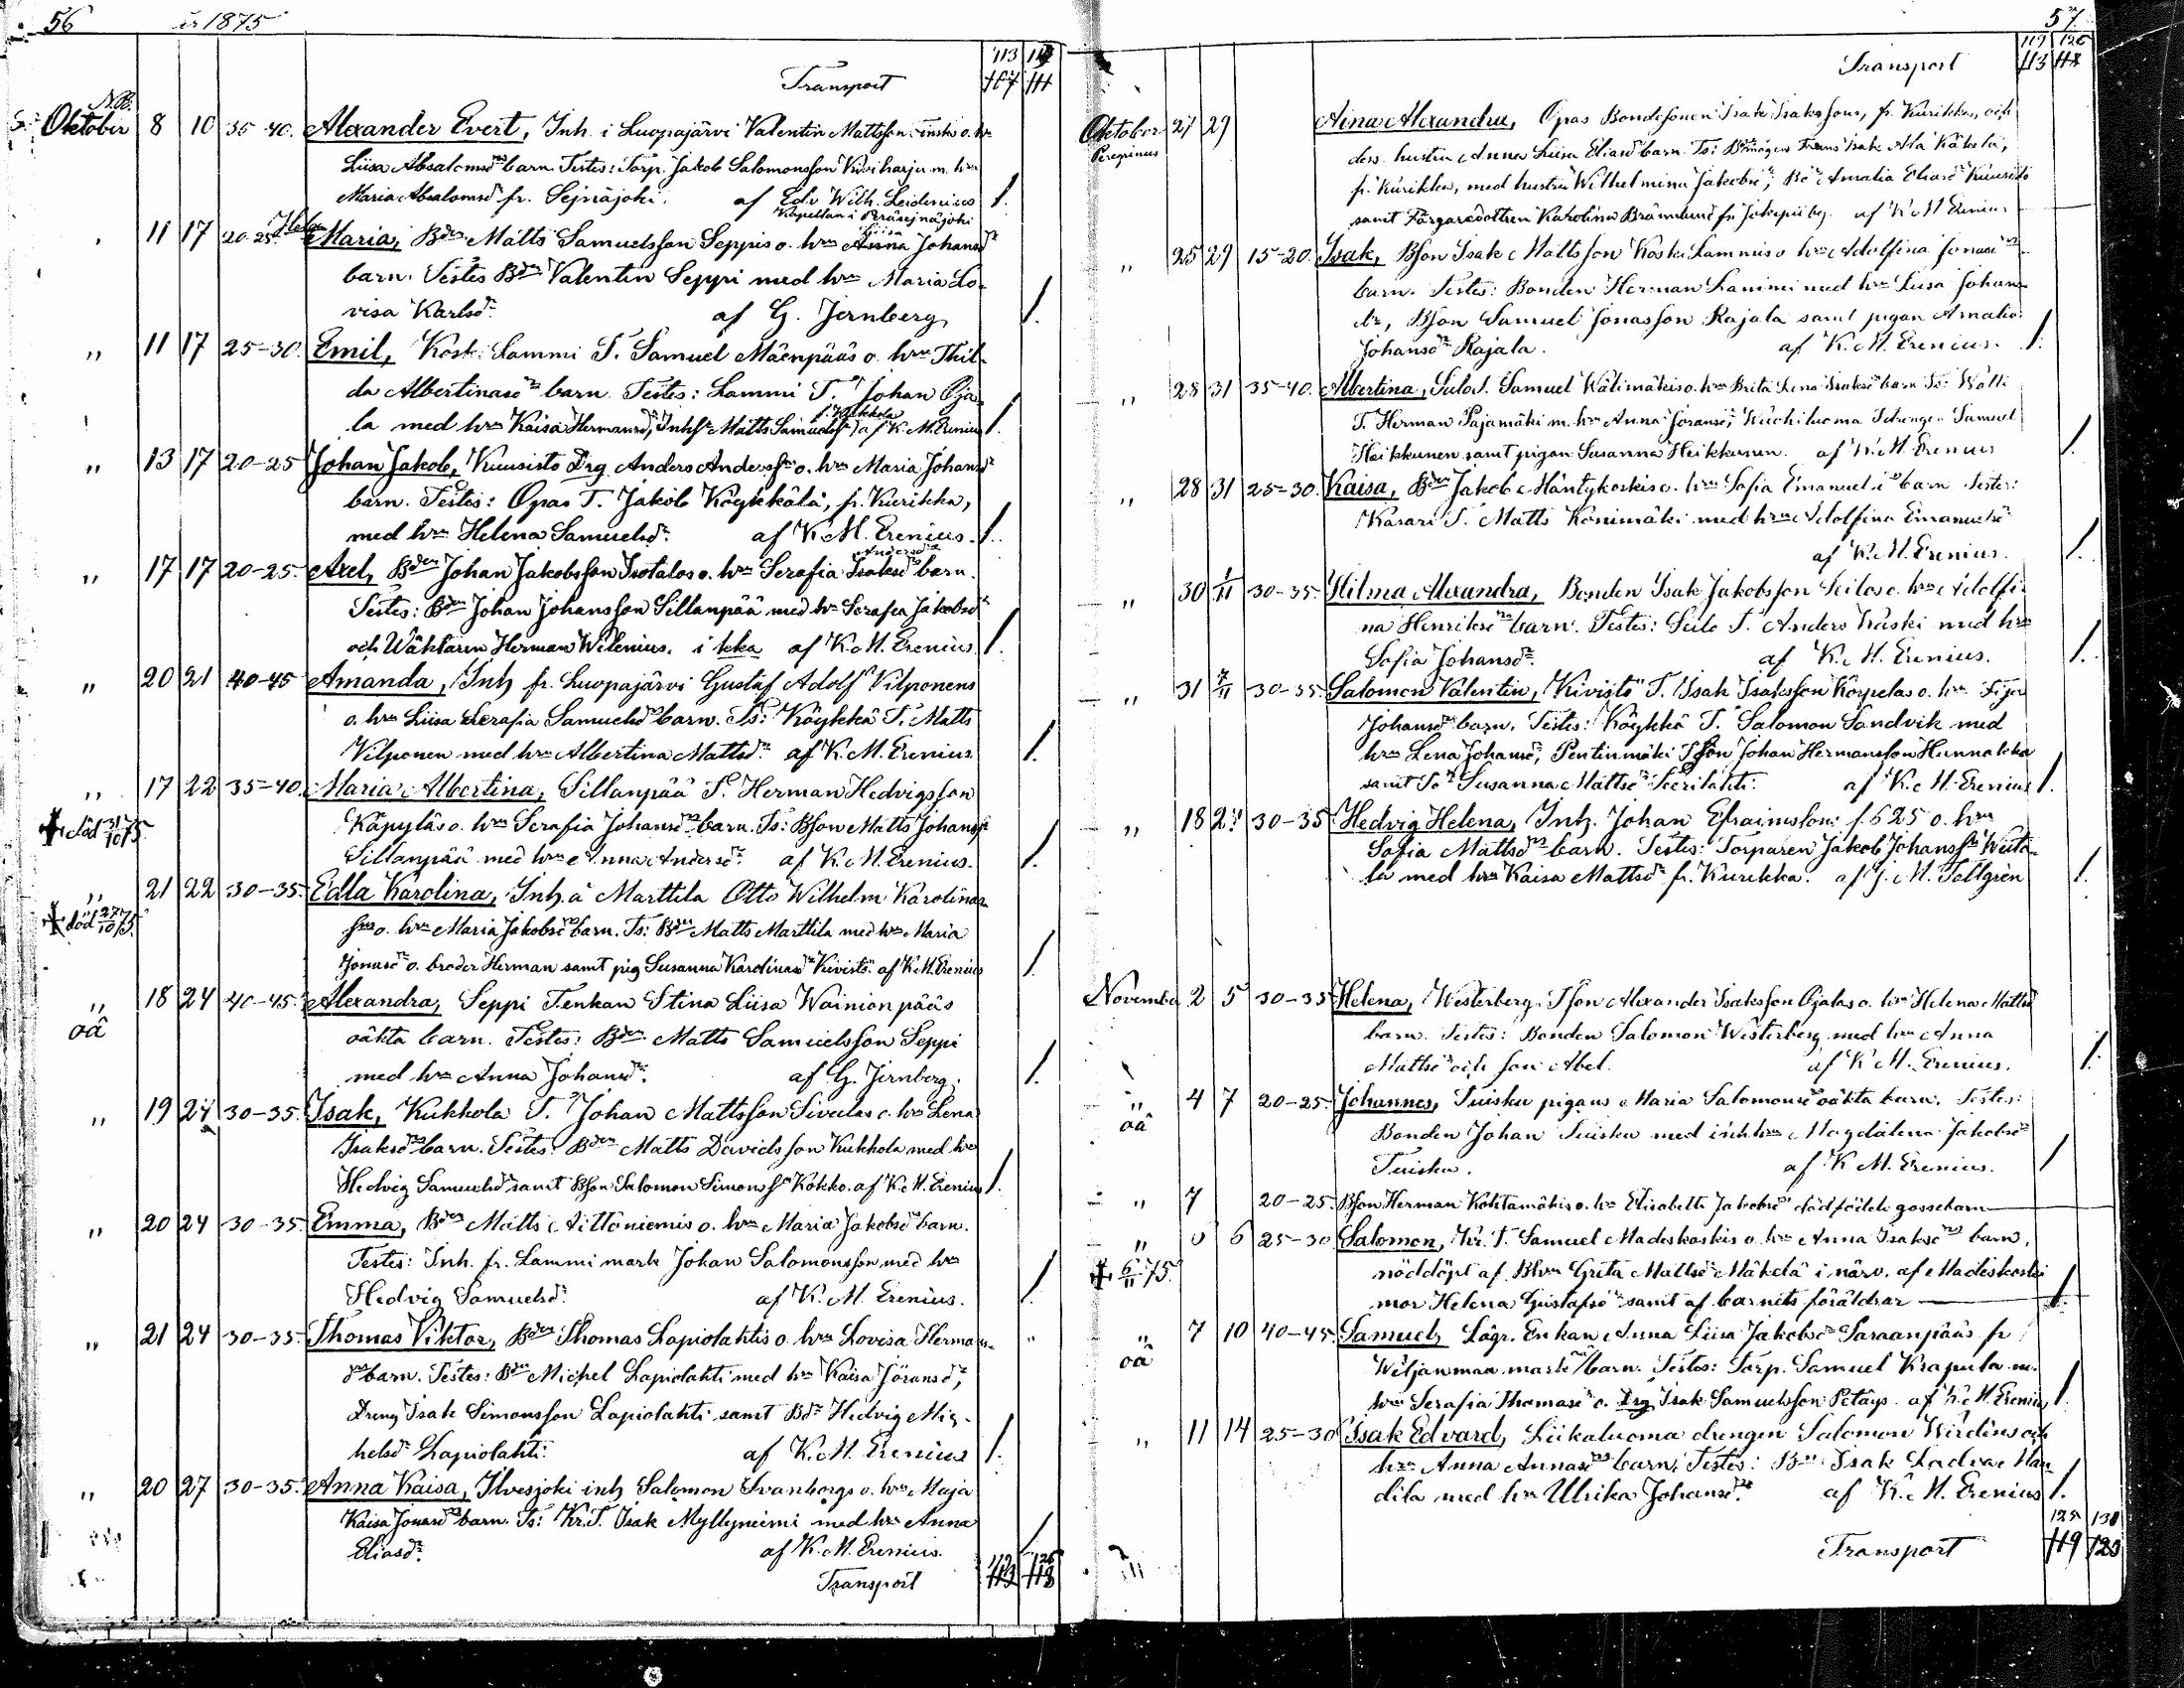 56 år 1875
113
107 111
Transport
N.B.
Oktober 8 10 35-40. Alexander Evert, Inh. i Luopajärvi Valentin Mattsson o. hrn
Liisa Absalomsdrs barn. Testes: Torp. Jakob Salomonsson Kiviharju m. hrn
Maria Absalomsdr fr. Sejnäjoki. af Edv. Wilh. Leidenius /.
Kapellan i Peräsejnäjoki
11 17 20-25. Helena Maria, Bden Matts Samuelsson Seppis o. hrn Anna Liisa Johansdrs
barn. Testes Bden Valentin Seppi med hrn Maria Lo-
visa Karlsdr. af G. Jernberg /.
" 11 17 25-30. Emil, Kosk. Lammi T. Samuel Mäenpääs o. hrn Thil-
da Albertinasdrs barn. Testes: Lammi T. Johan Oja-
la med hrn Kaisa Hermansdr, Inhs Matts Samuelss. f. Kukkola af K. M. Erenius /.
" 13 17 20-25 Johan Jakob, Kuusisto Drg Anders Anderss. o. hrn Maria Johansdrs
barn. Testes: Opas T. Jakob Köykkälä, fr. Kurikka,
med hrn Helena Samuelsdr. af K. M. Erenius. /.
" 17 17 20-25. Axel, Bden Johan Jakobsson Isotalos o. hrn Serafia Isaksdrs Andersdrs barn.
Testes: Bden Johan Johansson Sillanpää med hn Serafia Jakobsdr
och Wäktaren Herman Wilenius. i kka af K. M. Erenius. /.
" 20 21 40-45 Amanda, Inh fr. Luopajärvi Gustaf Adolf Vilponens
o. hrn Liisa Serafia Samuelsdrs barn. Ts: Köykkä T. Matts
Vilponen med hrn Albertina Mattsdr. af K. M. Erenius. /.
" 17 22 35-40. Maria Albertina, Sillanpää T. Herman Hedvigsson
död 31/10 75. Käpyläs o. hrn Serafia Johansdrs barn. Ts: Bson Matts Johanss.
Sillanpää med hrn Anna Andersdr. af K. M. Erenius. /.
" 21 22 30-35. Edla Karolina, Inh. å Marttila Otto Wilhelm Karolinas-
död 27/10 75. sons o. hrn Maria Jakobsdrs barn. Ts: Bden Matts Marttila med hrn Maria
Jonasdr o. broder Herman samt pig Susanna Karolinasdr Kivistö. af K. M. Erenius /.
" 18 24 40-45. Alexandra, Seppi Tenkan Stina Liisa Wainionpääs
oä oäkta barn. Testes: Bden Matts Samuelsson Seppi
med hrn Anna Johansdr. af G. Jernberg. /.
" 19 24 30-35. Isak, Kukkola T. Johan Mattsson Siveelas o. hrn Lena
Isaksdrs barn. Testes: Bden Matts Davidsson Kukkola med hrn
Hedvig Samuelsdr samt Bson Salomon Simonss. Kokko. af K. M. Erenius /.
" 20 24 30-35. Emma, Bden Matts Aittoniemis o. hrn Maria Jakobsdrs barn.
Testes: Inh. fr. Lammi mark Johan Salomonsson med hrn
Hedvig Samuelsdr. af K. M. Erenius. /.
" 21 24 30-35. Thomas Viktor, Bden Thomas Lapiolahtis o. hrn Lovisa Herman-
sdrs barn. Testes: Bden Michel Lapiolahti med hrn Kaisa Göransdr,
Dreng Isak Simonsson Lapiolahti samt Bdr Hedvig Mic-
helsdr Lapiolahti. af K. M. Erenius /.
" 20 27 30-35. Anna Kaisa, Ilvesjoki inh Salomon Svanborgs o. hrn Maja
Kaisa Jonasdrs barn. Ts: Kr. T. Isak Myllyniemi med hrn Anna
Eliasdr. af K. M. Erenius. /
Transport 113 118
57.
119 126
Transport 113 118
Oktober 27 29 Aina Alexandra, Opas Bondesonen Isak Isakssons, fr. Kurikka, och
dess hustru Anna Liisa Eliasdrs barn. Ts: Frans Isak Ala Käkelä,
fr. Kurikka, med hustru Wilhelmina Jakobsdr, Bdr Amalia Eliasdr Kuusisto
samt Färgaredottren Karolina Brännlund fr. af K. M. Erenius
" 25 29 15-20. Isak, Bson Isak Mattsson Koski Lammis o hrn Adolfina Jonasdrs
barn. Testes: Bonden Herman Lammi med hrn Liisa Johans-
dr, Bson Samuel Jonasson Rajala samt pigan Amalia
Johansdr Rajala. af K. M. Erenius. /.
" 28 31 35-40. Albertina, Lulo T. Samuel Wälimäkis o. hrn Brita Lena Isaksdrs barn Ts: Wälli
T. Herman Pajamäki m. hrn Anna Göransdr, drengen Samuel
Heikkunen samt pigan Susanna Heikkunen. af K. M. Erenius /.
" 28 31 25-30. Kaisa, Bden Jakob Häntykoskis o. hrn Sofia Emanuelsdrs barn Testes:
Kasari T. Matts Könimäki med hrn Adolfina Emanuelsdr
af K. M. Erenius. /.
" 30 1/11 30-35. Hilma Alexandra, Bonden Isak Jakobsson Luilos o. hrn Adolfi-
na Henriksdrs barn. Testes: Luilo T. Anders Kaski med hrn
Sofia Johansdr. af K. M. Erenius. /.
" 31 7/11 30-35 Salomon Valentin, Kivistö T. Isak Isaksson Korpelas o. hrn
Johansdrs barn. Testes: Köykkä T. Salomon Sandvik med
hrn Lena Johansdr, Pentinmäki Tson Johan Hermansson Hunnakka
samt Tdr Susanna Mattsdr af K. M. Erenius /.
" 18 24 30-35 Hedvig Helena, Inh. Johan Efraimssons f. 625 o. hrn
Sofia Mattsdrs barn. Testes: Torparen Jakob Johanss.
la med hrn Kaisa Mattsdr fr. Kurikka. af J. M. Tallgren /.
November 2 5 30-35 Helena, Westerberg Tson Alexander Isaksson Ojalas o. hrn Helena Mattsdrs
barn. Testes: Bonden Salomon Westerberg med hrn Anna
Mattsdr och son Abel. af K. M. Erenius. /.
" 4 7 20-25. Johannes, Tuisku pigans Maria Salomonsdrs oäkta barn. Testes:
oä Bonden Johan Tuisku med inhhrn Magdalena Jakobsdr
Tuisku. af K. M. Erenius. /
" 7 20-25. Bson Herman Kohtamäkis o. hrn Elisabeth Jakobsdrs dödfödde gossebarn
" 6 25-30 Salomon, Kr. T. Samuel Madeskoskis o. hrn Anna Isaksdrs barn,
6/11 75. nöddöpt af Bhrn Greta Mattsdr Mäkelä i närv. af Madeskoski
mor Helena Gustafsdr samt af barnets föräldrar /.
" 7 10 40-45. Samuel, Lägr. Enkan Anna Liisa Jakobsdr Saraanpääs fr
oä Wiljanmaa mark barn. Testes: Torp. Samuel Krapula m.
hrn Serafia Thomasdr o. Drg Isak Samuelsson Petäys. af K. M. Erenius /.
" 11 14 25-30 Isak Edvard, Liikaluoma drengen Salomon Wirdens och
hrn Anna Annasdrs barn. Testes: Bden Isak Ladva Man-
dila med hrn Ulrika Johansdr. af K. M. Erenius /.
125 131
Transport 119 123